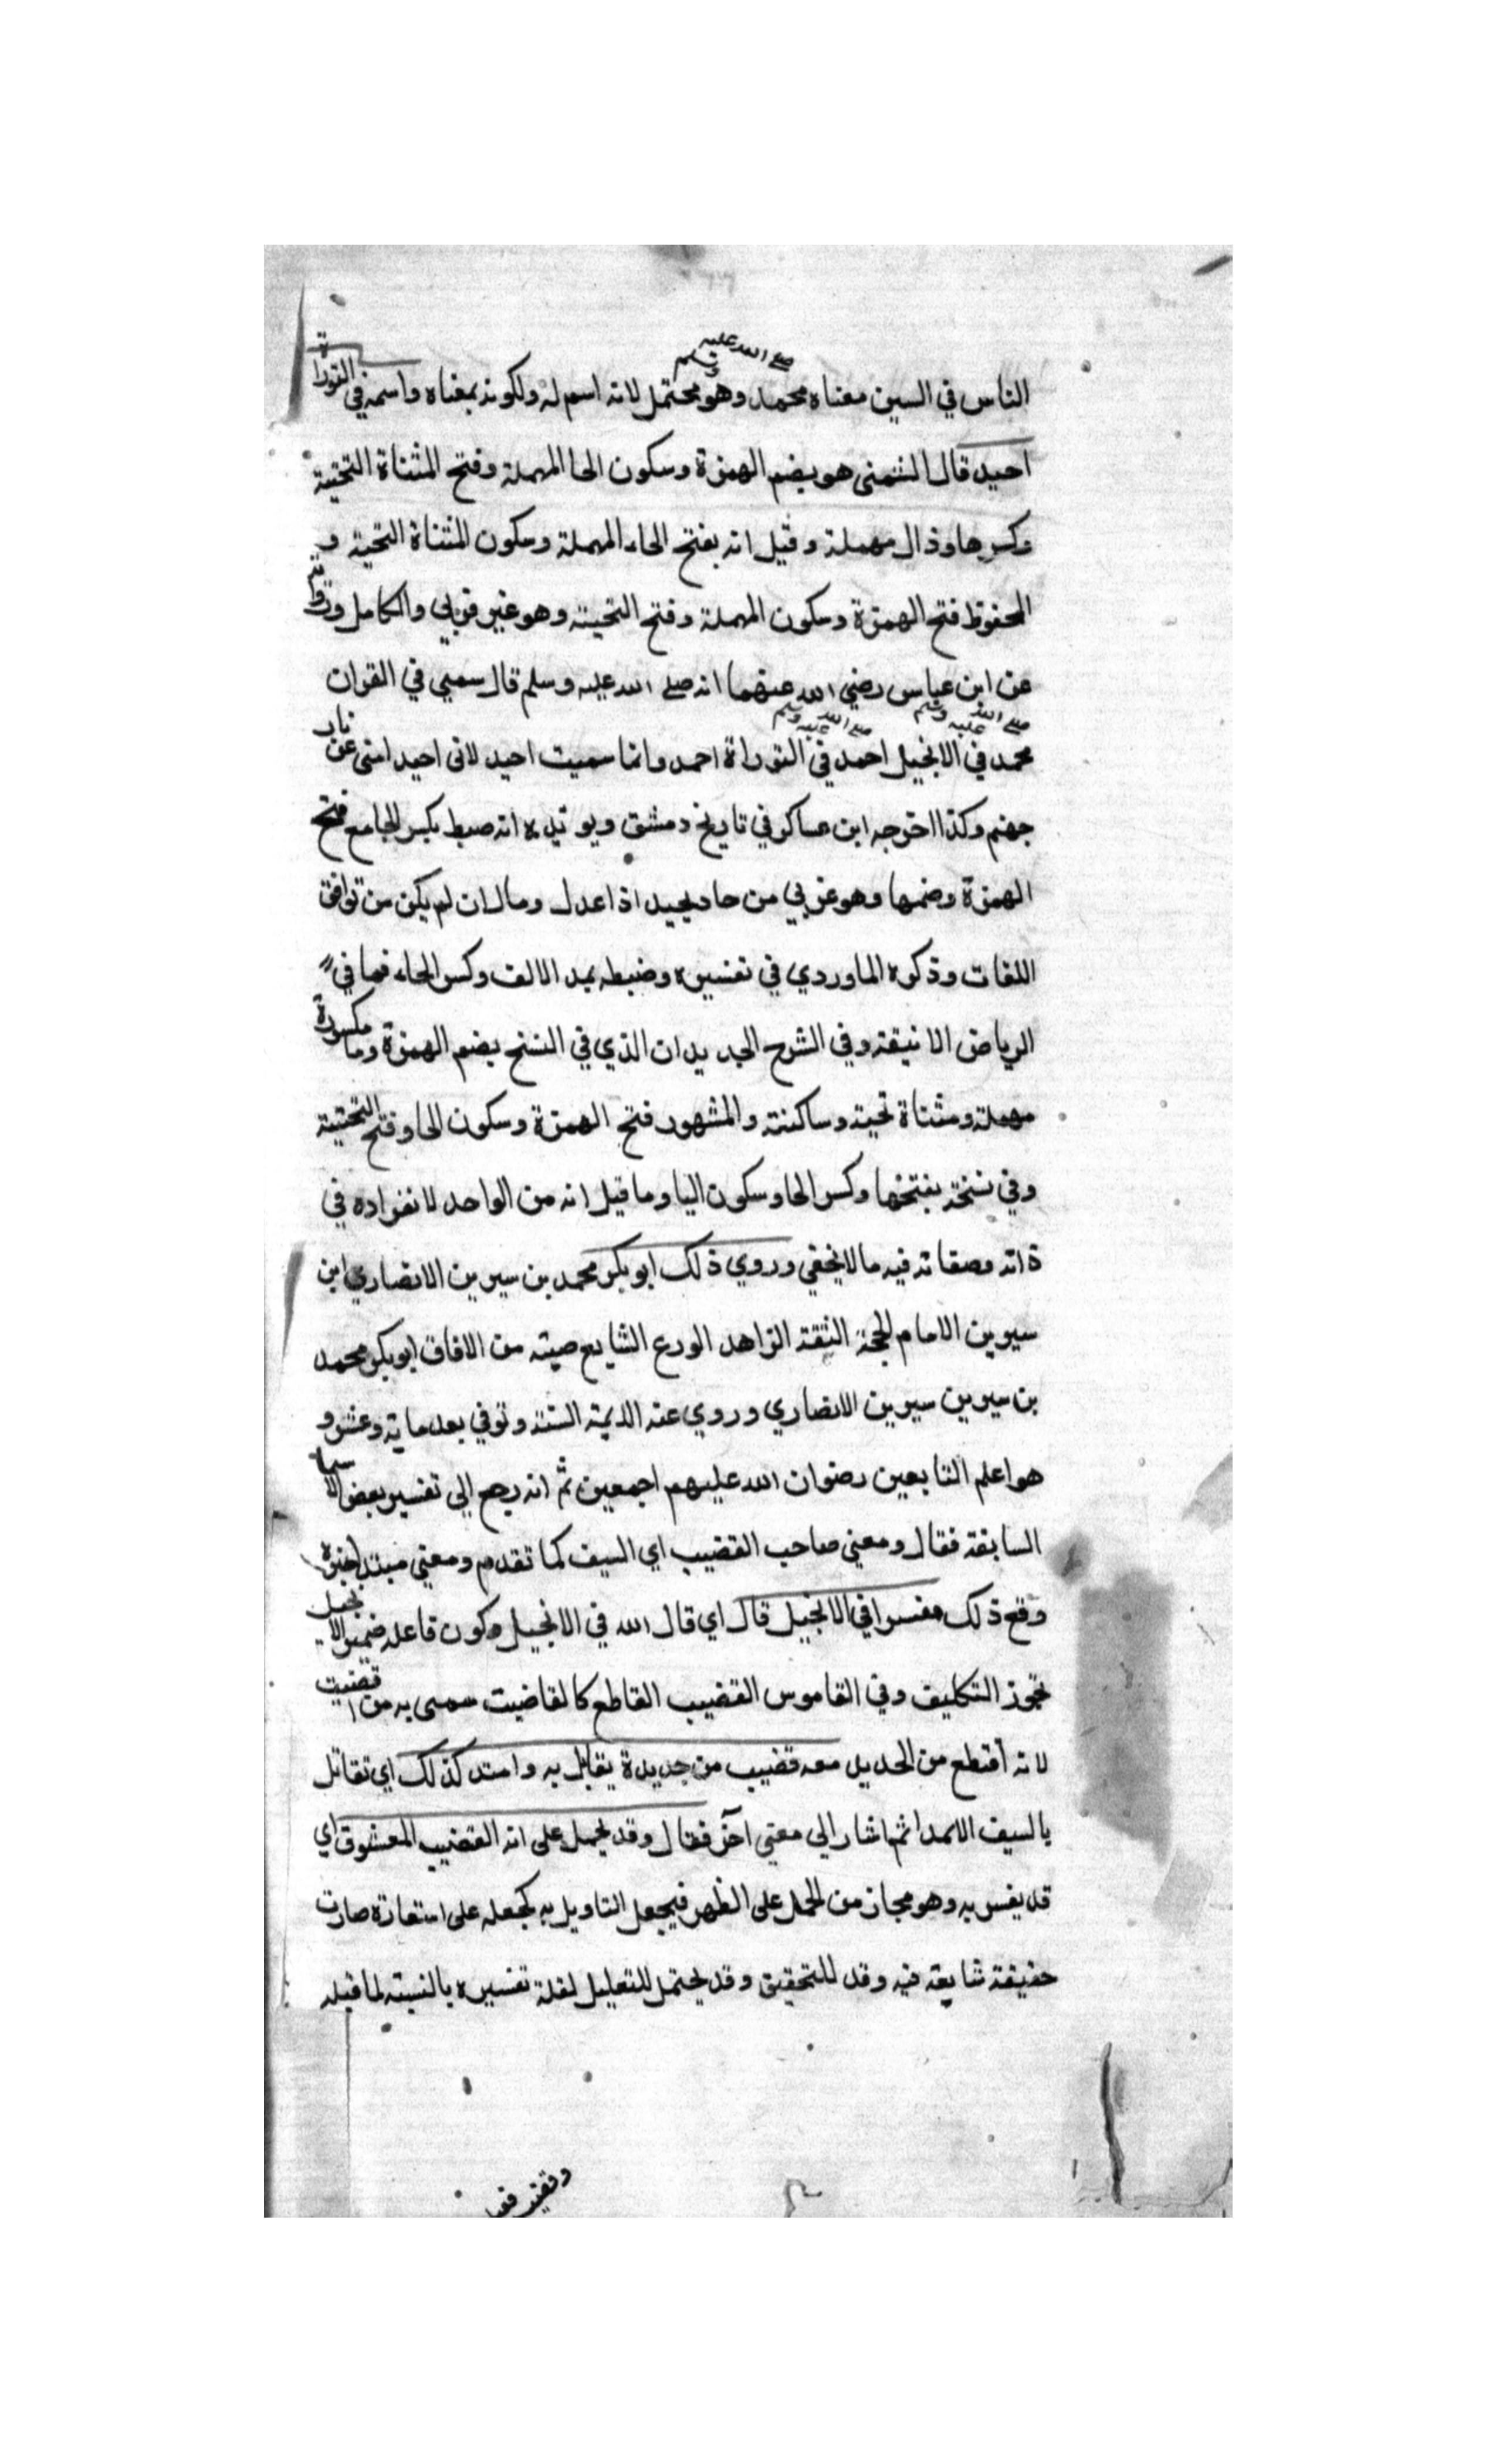 صلى الله عليه وسلم
الناس في السين معناه محمد وهو محتمل لانه اسم له ولكونه بمعناه واسمه في التوراة
احيد قال الشمنى هو بضم الهمزة وسكون الحا المهملة وفتح المثناة التحتية
وكسرها وذال مهملة وقيل انه بفتح الحاء المهملة وسكون المثناة التحتية و
المحفوظ فتح الهمزة وسكون المهملة وفتح التحيته وهو غير
عن ابن عباس رضي الله عنهما انه صلى الله عليه وسلم قال سميي في القران
صلى الله عليه وسلم صلى الله عليه وسلم
محمد في الانجيل احمد في التوراة احمد وانما سميت احيد لانى احيد امتى عن نار
جهنم وكذا اخرجه ابن عساكر في تاريخ دمشق ويويده انه ضبط بكسر الجامع فتح
الهمزة وضمها وهو عربي من حاد يحيد اذا عدل ومال ان لم يكن من توافق
اللغات وذكره الماوردي في تفسيره وضبطه بمد الالف وكسر الحاء فما في
الرياض الانيقة وفي الشرح الجديد ان الذي في النسخ بضم الهمزة وحا مكسورة
مهملة ومثناة تحية وساكنة والمشهور فتح الهمزة وسكون الحا وفتح التحتية
وفي نسخة بفتحها وكسر الحا وسكون اليا وما قيل انه من الواحد لانفراده في
ذاته وصفاته فيه مالا يخفي وروي ذلك ابو بكر محمد بن سيرين الانصاري ابن
سيرين الامام الحجة الثقة الزاهد الورع الشايع صيته من الافاق ابو بكر محمد
بن سيرين سيرين الانصاري وروي عنه الايمة الستة وتوفي بعد ماية وعشر و
هو اعلم التابعين رضوان الله عليهم اجمعين ثم انه رجع الي تفسير بعض الاسما
السابقة فقال ومعني صاحب القضيب اي السيف كما تقدم ومعني مبتدا خبره
وقع ذلك مفسرا في الانجيل قال اي قال الله في الانجيل وكون فاعله ضمير الانجيل
تجوز التكليف وفي القاموس القضيب القاطع كالقاضيت سمى به من قضيت
لانه اقتطع من الحديد معه قضيب من حديدة يقاتل به وامته كذلك اي تقاتل
بالسيف الامدا ثم اشار الي معني آخر فقال وقد يحمل على انه القضيب المعشوق اي
قد يفسر به وهو مجاز من الحمل على الظهر فيجعل التاويل به كجعله على استعارة صارت
حقيقة شايعة فيه وقد للتحقيق وقد يحتمل للتعليل لقلة تفسيره بالنسبة لما قبله